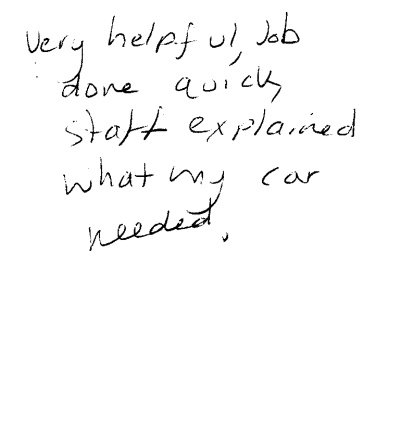 Very helpful, Job
done quick,
staff explained
what my car
needed.